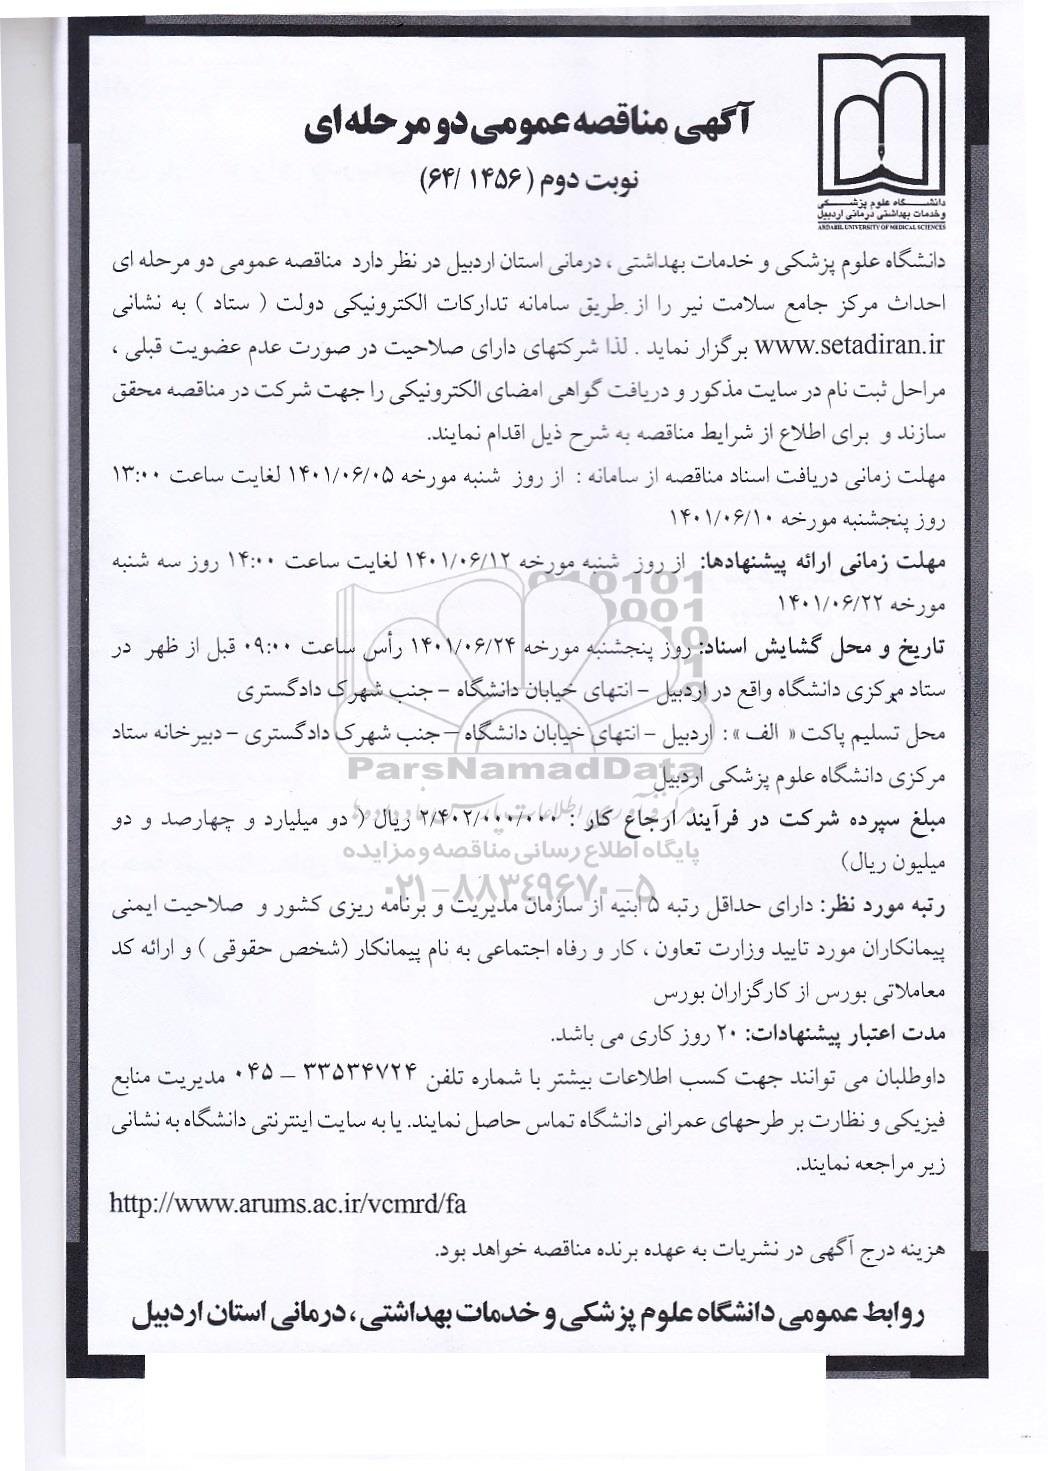 دانشگاه علوم پزشکی
وخدمات بهداشتی درمانی اردبیل
ARDABIL UNIVERSITY OF MEDICAL SCIENCES
آگهی مناقصه عمومی دو مرحله ای
نوبت دوم ( ۱۴۵۶ /۶۴)
دانشگاه علوم پزشکی و خدمات بهداشتی ، درمانی استان اردبیل در نظر دارد مناقصه عمومی دو مرحله ای
احداث مرکز جامع سلامت نیر را از طریق سامانه تدارکات الکترونیکی دولت ( ستاد ) به نشانی
www.setadiran.ir برگزار نماید . لذا شرکتهای دارای صلاحیت در صورت عدم عضویت قبلی ،
مراحل ثبت نام در سایت مذکور و دریافت گواهی امضای الکترونیکی را جهت شرکت در مناقصه محقق
سازند و برای اطلاع از شرایط مناقصه به شرح ذیل اقدام نمایند.
مهلت زمانی دریافت اسناد مناقصه از سامانه : از روز شنبه مورخه ۱۴۰۱/۰۶/۰۵ لغایت ساعت ۱۳:۰۰
روز پنجشنبه مورخه ۱۴۰۱/۰۶/۱۰
مهلت زمانی ارائه پیشنهادها: از روز شنبه مورخه ۱۴۰۱/۰۶/۱۲ لغایت ساعت ۱۴:۰۰ روز سه شنبه
مورخه ۱۴۰۱/۰۶/۲۲
تاریخ و محل گشایش اسناد: روز پنجشنبه مورخه ۱۴۰۱/۰۶/۲۴ رأس ساعت ۰۹:۰۰ قبل از ظهر در
ستاد مرکزی دانشگاه واقع در اردبیل – انتهای خیابان دانشگاه – جنب شهرک دادگستری
محل تسلیم پاکت « الف » : اردبیل – انتهای خیابان دانشگاه – جنب شهرک دادگستری – دبیرخانه ستاد
مرکزی دانشگاه علوم پزشکی اردبیل
ParsNamadData
مبلغ سپرده شرکت در فرآیند ارجاع کار : ۲/۴۰۲/۰۰۰/۰۰۰ ریال ( دو میلیارد و چهارصد و دو
میلیون ریال)
پایگاه اطلاع رسانی مناقصه و مزایده
۰۲۱-۸۸۳۴۹۶۷۰-۵
رتبه مورد نظر: دارای حداقل رتبه ۵ ابنیه از سازمان مدیریت و برنامه ریزی کشور و صلاحیت ایمنی
پیمانکاران مورد تایید وزارت تعاون ، کار و رفاه اجتماعی به نام پیمانکار (شخص حقوقی ) و ارائه کد
معاملاتی بورس از کارگزاران بورس
مدت اعتبار پیشنهادات: ۲۰ روز کاری می باشد.
داوطلبان می توانند جهت کسب اطلاعات بیشتر با شماره تلفن ۳۳۵۳۴۷۲۴ – ۰۴۵ مدیریت منابع
فیزیکی و نظارت بر طرحهای عمرانی دانشگاه تماس حاصل نمایند. یا به سایت اینترنتی دانشگاه به نشانی
زیر مراجعه نمایند.
http://www.arums.ac.ir/vcmrd/fa
هزینه درج آگهی در نشریات به عهده برنده مناقصه خواهد بود.
روابط عمومی دانشگاه علوم پزشکی و خدمات بهداشتی ، درمانی استان اردبیل